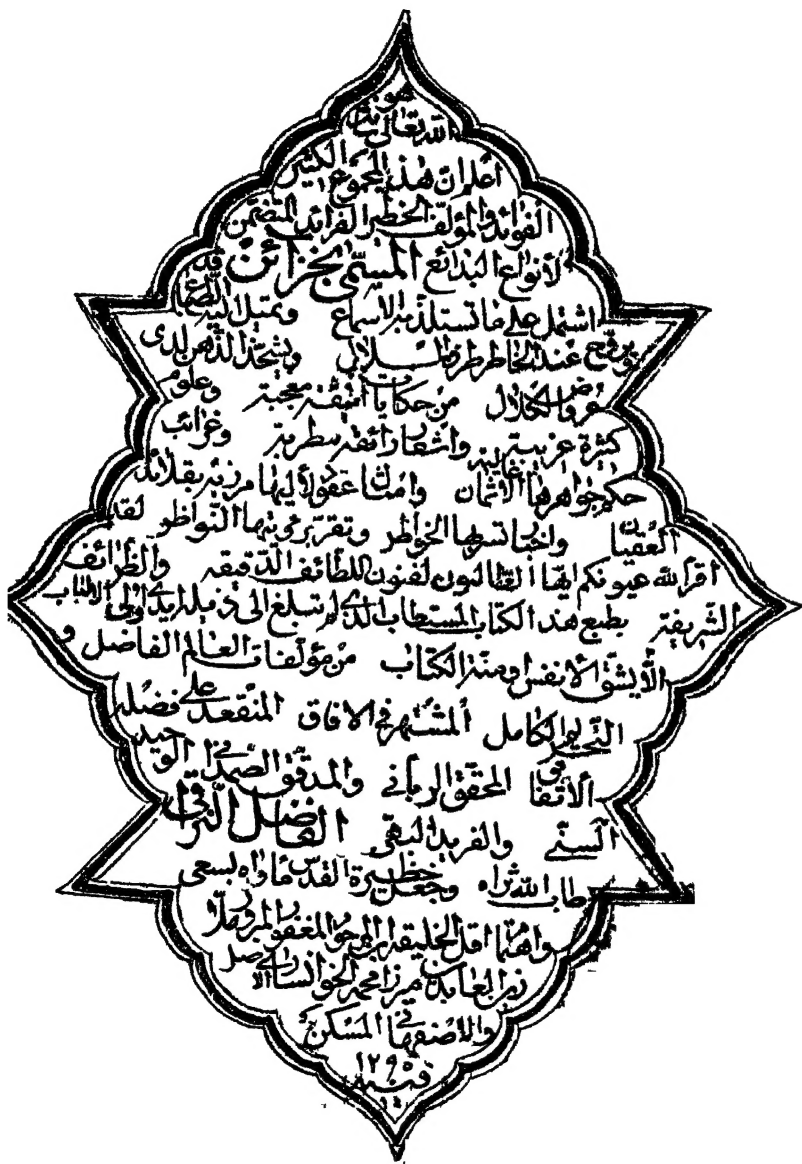 هو
الله تعالى شأنه
اعلم ان هذه المجموع الكثير
الفوائد والمؤلف الخطير الفرائد المتضمن
لأنواع البدائع المسمّى بخزائن قد
اشتمل على ما تستلذ به الاسماع ويميل اليه الطباع
ويرفع عند الخاطر الملال ويشحذ الذهن لدى
عروض الكلال من حكايات انيقة معجبة وعلوم
كثيرة غريبة واشعار رائقة مطربة وغرائب
حكم جواهرها الاثمان وامثال عقود لآليها مزرية بقلائد
العقيان واخبار تسر بها الخواطر وتقر برؤيتها النواظر لقد
اقر الله عيونكم ايها الطالبون لفنون اللطائف الدقيقة والظرائف
الشريفة بطبع هذا الكتاب المستطاب الذي لم تبلغ الى ذيله ايدي اولي الالباب
الا بشق الأنفس ومنة الكتاب من مؤلفات العالم الفاضل و
النحرير الكامل المشتهر في الافاق المنعقد على فضله
الأتفاق المحقق الرباني والمدقق الصمداني الوحيد
السني والفريد البهي الفاضل النراقي
طاب الله ثراه وجعل حظيرة القدس مأواه بسعى
واهتمام اقل الخليقة ابن المرحوم المغفور المبرور ملا
زين العابدين ميرزا محمد الخوانساري الاصل
والاصفهاني المسكن
في سنة ١٢٩٥